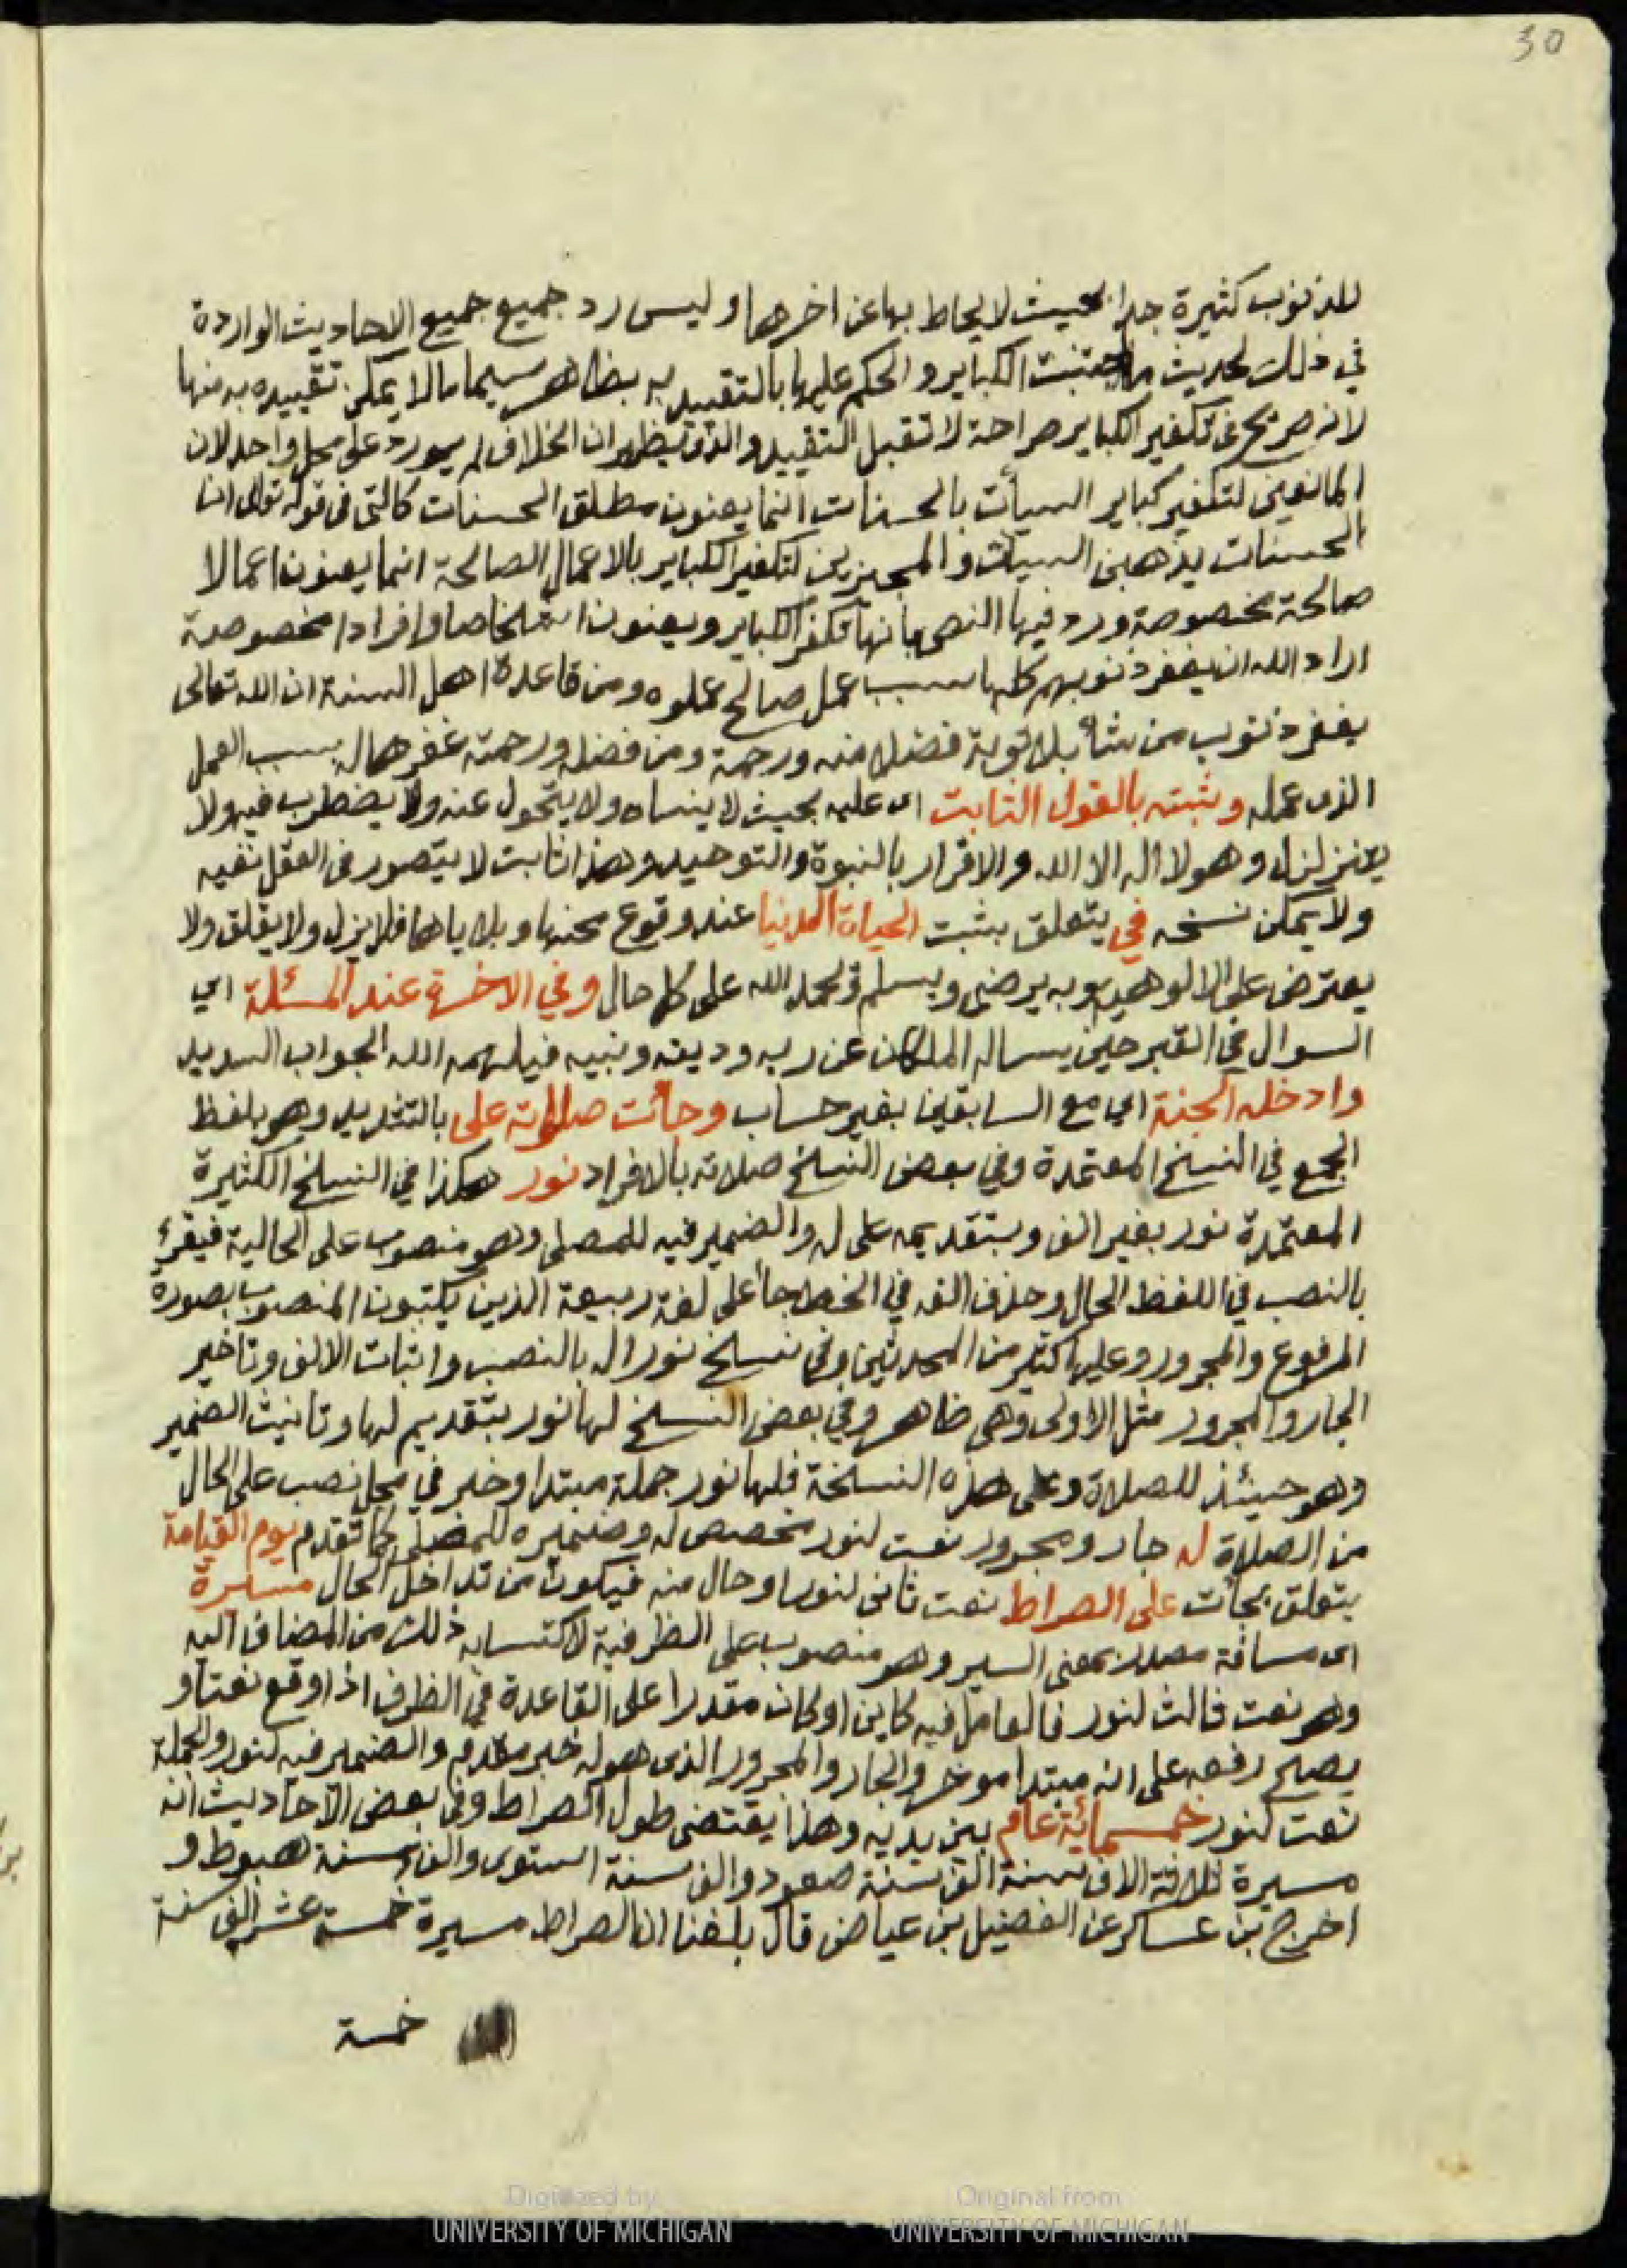 30
للذنوب كثيرة جدا بحيث لا يحاط بها عن اخرها وليس رد جميع جميع الاحاديث الواردة
في ذلك لحديث ما اجتنبت الكباير والحكم عليها بالتقييد به بظاهر سيما ما لا يمكن تقييده به منها
لانه صريح في تكفير الكباير صراحة لا تقبل التقييد والذي يظهر ان الخلاف لم يورد على محل واحد لان
المانعين لتكفير كباير السيأت بالحسنات انما يعنون مطلق الحسنات كالتي في قوله تعالى ان
الحسنات يذهبن السيأت والمجيزين لتكفير الكباير بالاعمال الصالحة انما يعنون اعمالا
صالحة مخصوصة ورد فيها النص بانها تكفر الكباير ويعنون اشخاصا وافرادا مخصوصة
اراد الله ان يغفر ذنوبهم كلها بسبب عمل صالح عملوه ومن قاعدة اهل السنة ان الله تعالى
يغفر ذنوب من شأ بلا توبة فضلا منه ورحمة ومن فضله ورحمته غفرها له بسبب العمل
الذى عمله وثبته بالقول الثابت اى عليه بحيث لا ينساه ولا يتحول عنه ولا يضطرب فيه ولا
يتزلزل وهو لا اله الا الله والاقرار بالنبوة والتوحيد وهذا ثابت لا يتصور في العقل نفيه
ولا يمكن نسخه في يتعلق بثبت الحياة الدنيا عند وقوع محنها وبلاياها فلا يزل ولا يقلق ولا
يعترض على الالوهية وبه يرضى ويسلم ويحمد الله على كل حال وفي الاخرة عند المسئلة اي
السوال في القبر حين يساله الملكان عن ربه ودينه ونبيه فيلهمه الله الجواب السديد
وادخله الجنة اي مع السابقين بغير حساب وجأت صلواته على بالتشديد وهو بلفظ
الجمع في النسخ المعتمدة وفي بعض النسخ صلاته بالافراد نور هكذا في النسخ الكثيرة
المعتمدة نور بغير الف وبتقديمه على له والضمير فيه للمصلى وهو منصوب على الحالية فيقرئ
بالنصب في اللفظ الحال وحذف الفه في الخط جأ على لغة ربيعة الذين يكتبون المنصوب بصورة
المرفوع والمجرور وعليها كثير من المحدثين وفي نسخ نورا له بالنصب واثبات الالف وتاخير
الجار والمجرور مثل الاولى وهى ظاهر وفي بعض النسخ لها نور بتقديم لها وتانيث الضمير
وهو حينئذ للصلاة وعلى هذه النسخة فلها نور جملة مبتدا وخبر في محل نصب على الحال
من الصلاة له جار ومجرور نعت لنور مخصص له وضميره للمصلي كما تقدم يوم القيامة
يتعلق بجأت على الصراط نعت ثاني لنور او حال منه فيكون من تداخل الحال مسيرة
اى مسافة مصدر بمعنى السير وهو منصوب على الظرفية لاكتسابه ذلك من المضاف اليه
وهو نعت ثالث لنور فالعامل فيه كاين او كان مقدرا على القاعدة في الظرف اذا وقع نعتا و
يصلح رفعه على انه مبتدا موخر والجار والمجرور الذى هو له خبر مقدم والضمير فيه لنور والجملة
نعت لنور خمسمائة عام بين يديه وهذا يقتضى طول الصراط وفي بعض الاحاديث انه
مسيرة ثلاثة الاف سنة الف سنة صعود والف سنة استوى والف سنة هبوط و
اخرج بن عساكر عن الفضيل بن عياض قال بلغنا ان الصراط مسيرة خمسة عشر الف سنة
خمسة
Digitized by
UNIVERSITY OF MICHIGAN
Original from
UNIVERSITY OF MICHIGAN